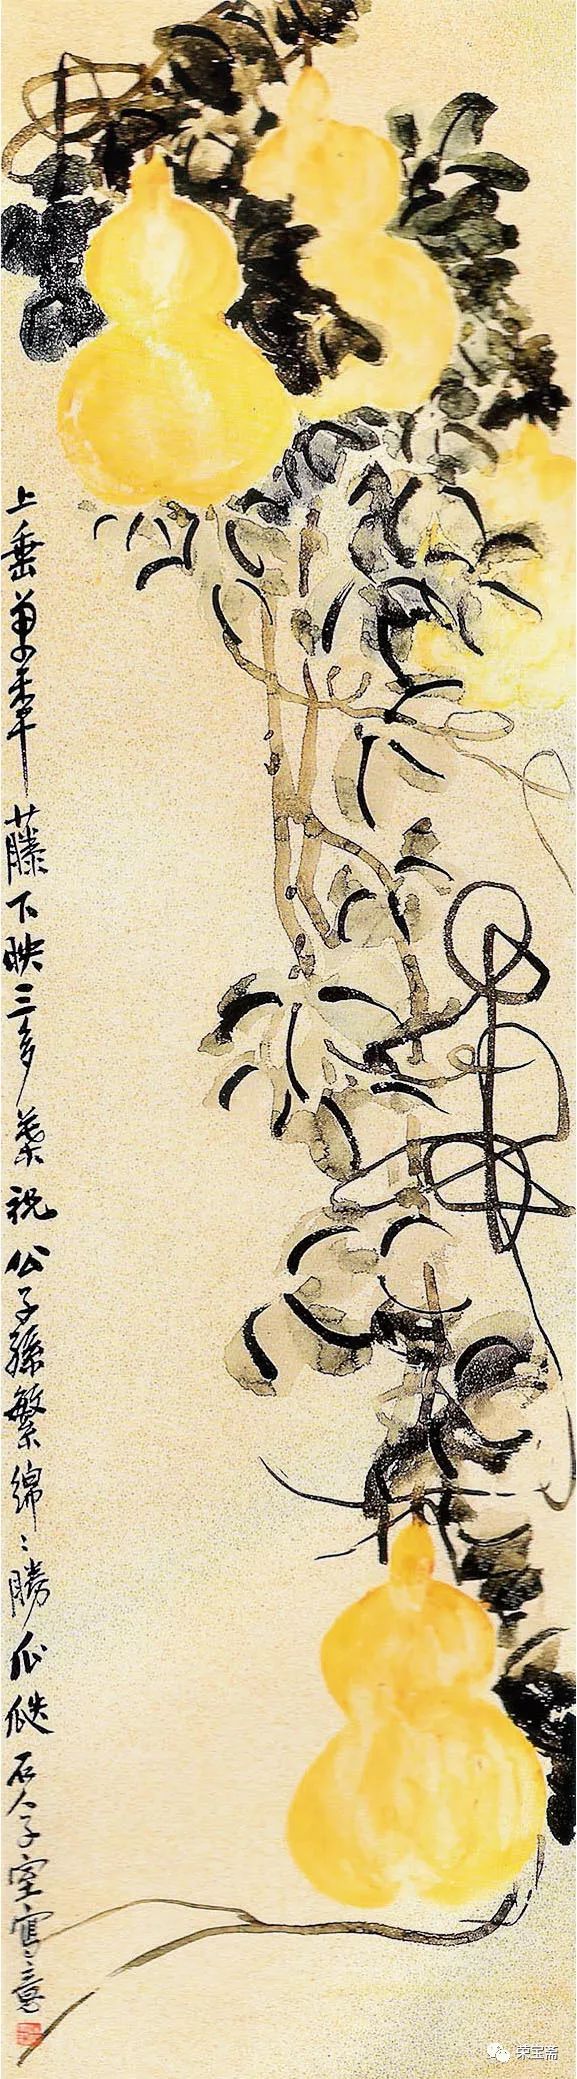 上垂万年藤下映三多叶祝公子孫繁綿〻勝瓜瓞石人子室寫意
荣宝斋